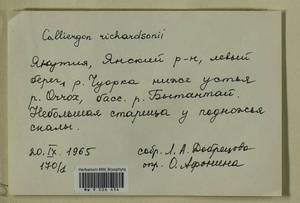 Calliergon richardsonii
Якутия, Янский р-н, левый
берег р. Чуорка ниже устья
р. басс. р. Бытантай.
Небольшая старица у подножья
скалы.
20.IX.1965
собр. Л. А. Добрецова
170/1
опр. О. Афонина
Herbarium MW, Bryophyta